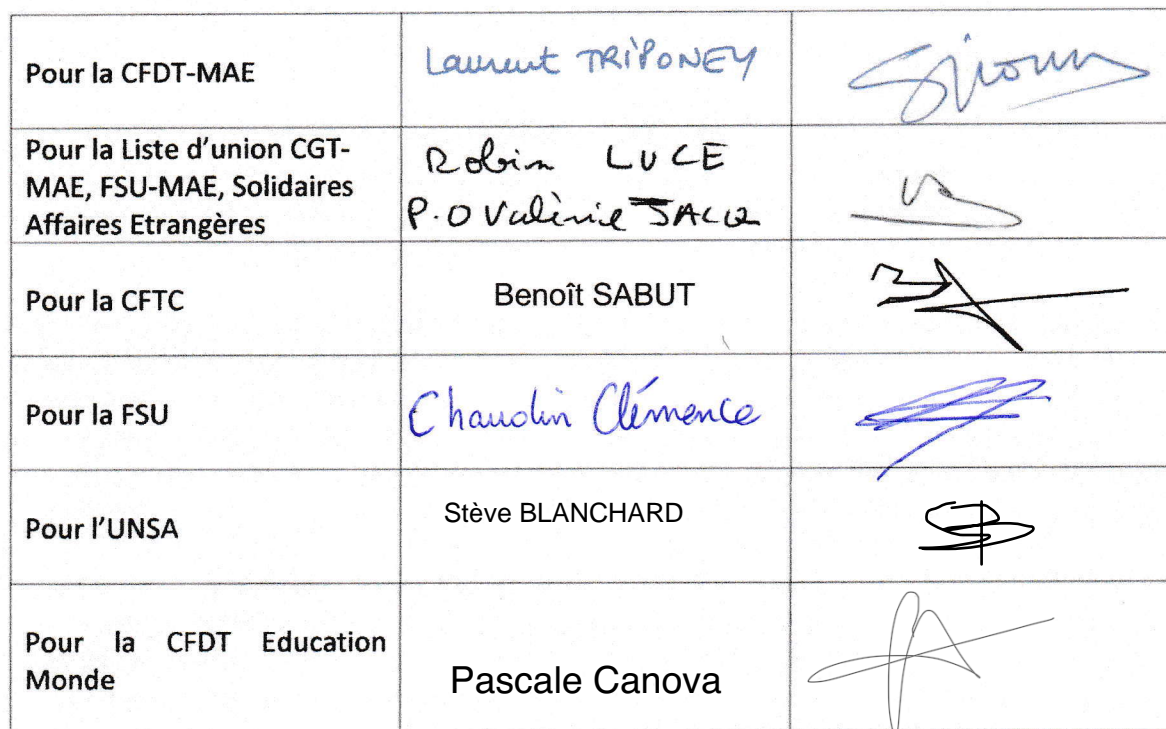 Pour la CFDT-MAE
Laurent TRIPONEY
Pour la Liste d'union CGT-
MAE, FSU-MAE, Solidaires
Affaires Etrangères
Robin LUCE
P.O Valérie JACQ
Pour la CFTC
Benoît SABUT
Pour la FSU
Chaudin Clémence
Pour l'UNSA
Stève BLANCHARD
Pour la CFDT Education
Monde
Pascale Canova